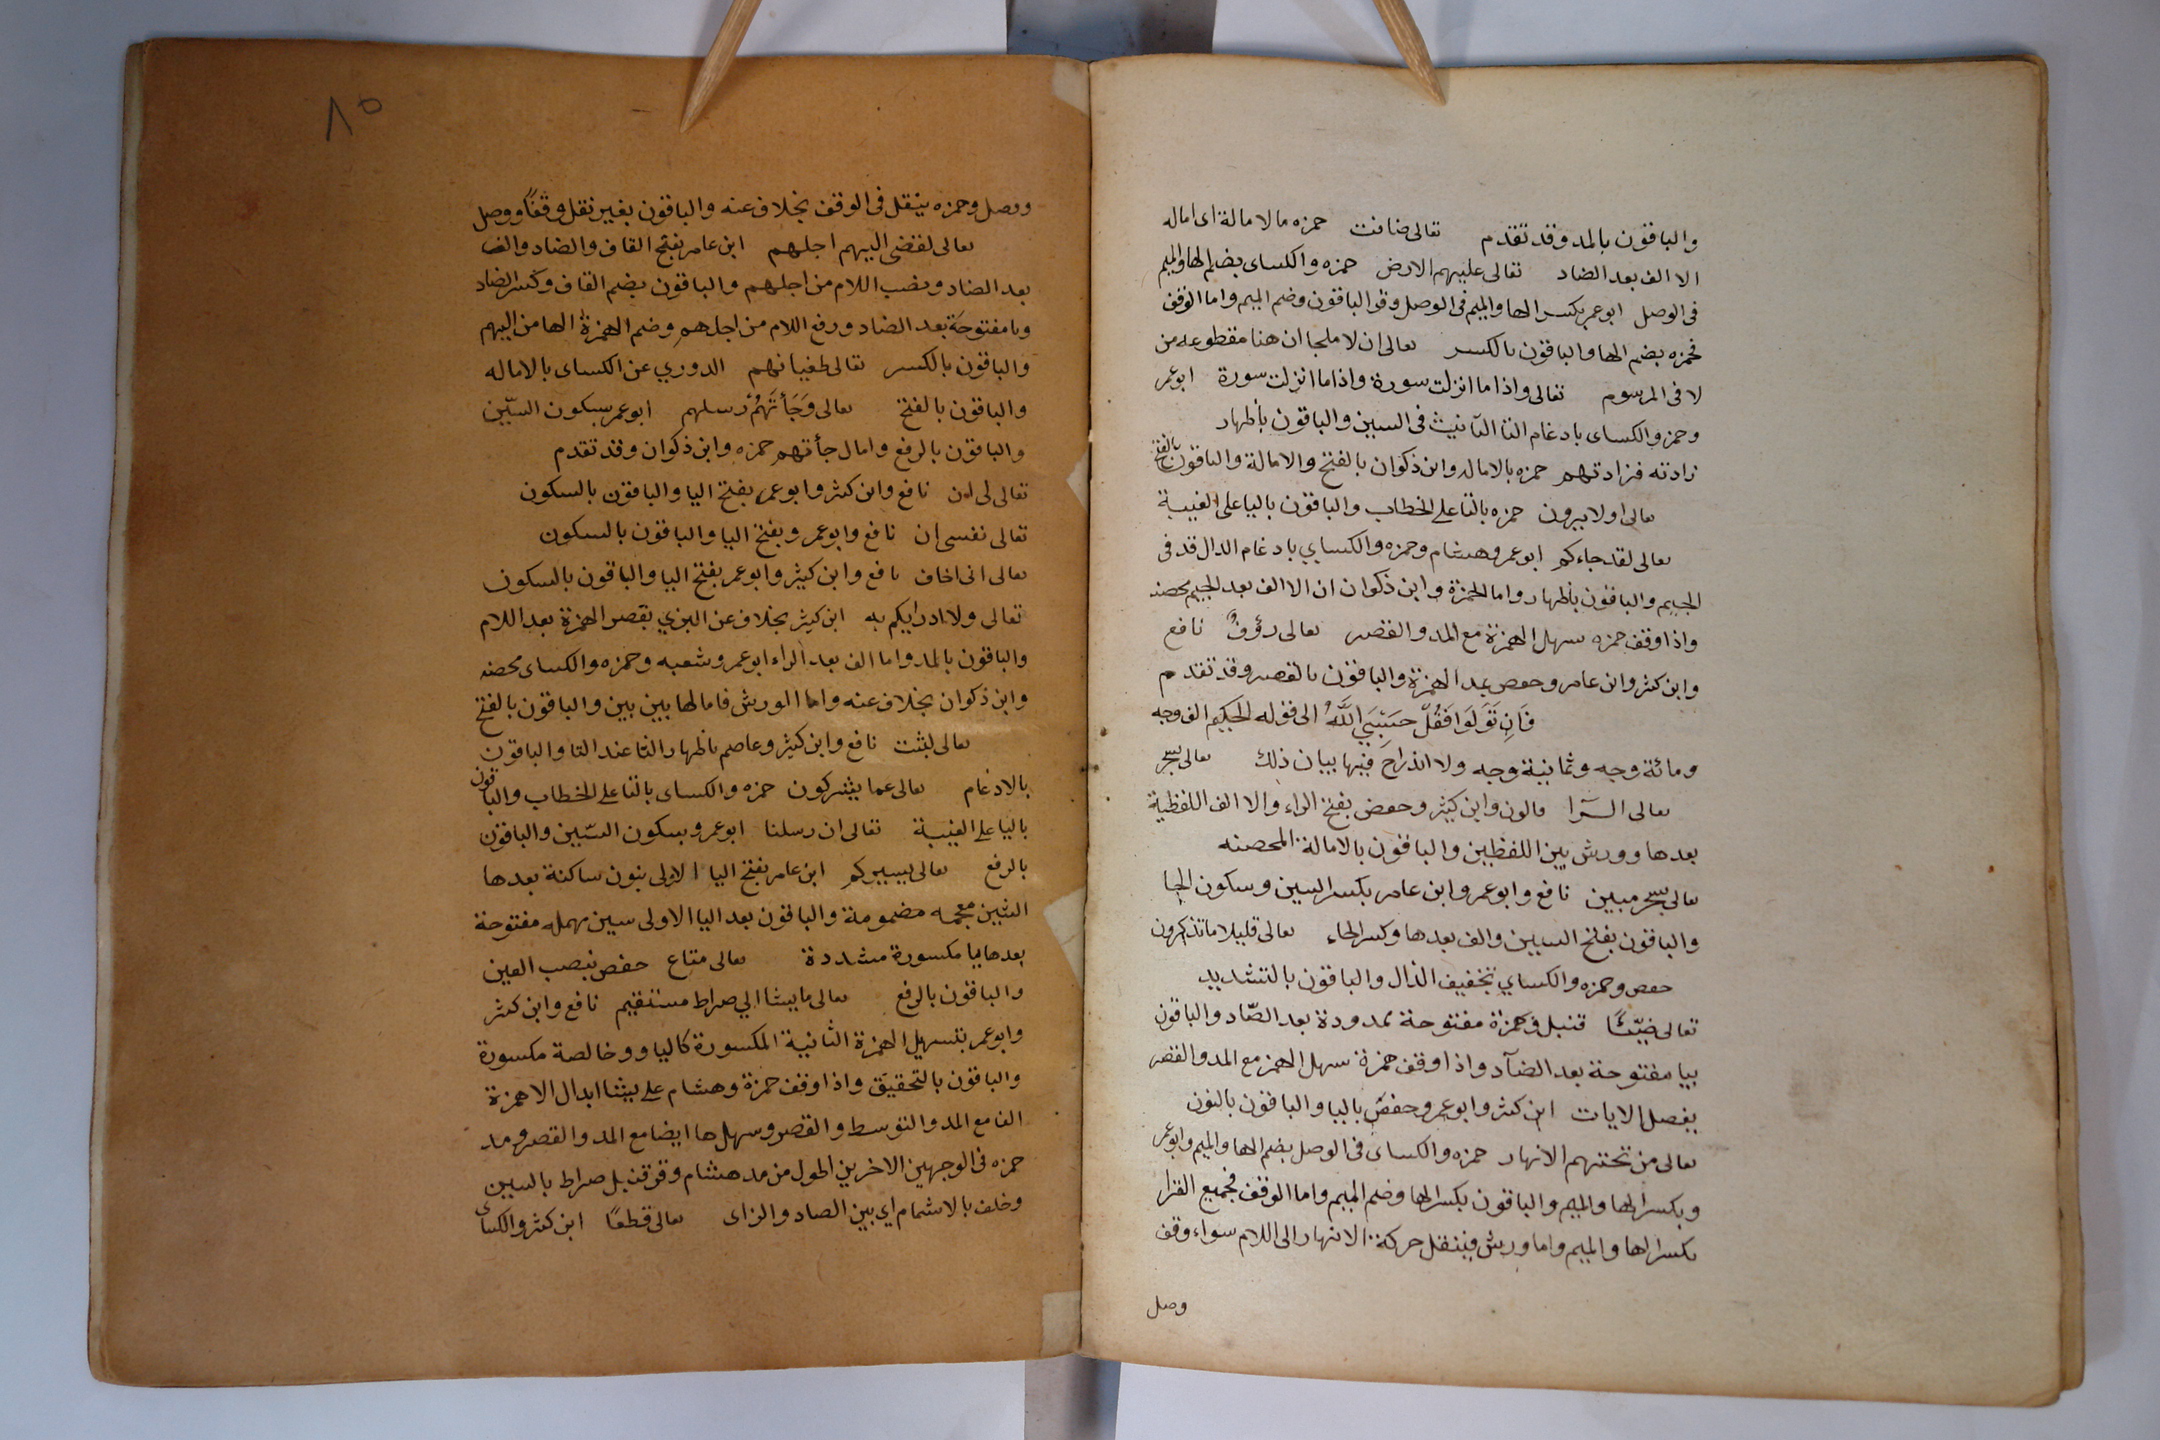 والباقون بالمد وقد تقدم تعالى ضاقت حمزه بالامالة اى اماله
الا الف بعد الضاد تعالى عليهم الارض حمزه والكساى بضم الها والميم
فى الوصل ابو عمر بكسر الها والميم فى الوصل وقو الباقون وضم الميم واما الوقف
فحمزه بضم الها والباقون بالكسر تعالى ان لا ملجا ان هنا مقطوعه من
لا فى المرسوم تعالى واذا ما انزلت سورة واذا ما انزلت سورة ابو عمر
وحمز والكساى بادغام التا التآنيث فى السين والباقون بأظهار
زادته فزادتهم حمزه بالاماله وابن ذكوان بالفتح والامالة والباقون بالفتح
تعالى اولا يرون حمزه بالتا على الخطاب والباقون باليا على الغيبة
تعالى لقد جاءكم ابو عمر وهشام وحمزه والكساي بادغام الدال قد فى
الجيم والباقون بأظهار واما الحمزة وابن ذكوان ان الا الف بعد الجيم محضه
واذا وقف حمزه سهل الهمزة مع المد والقصر تعالى رؤوف نافع
وابن كثر وابن عامر وحفص بمد الهمزة والباقون بالقصر وقد تقدم
فَاِن تَوَلَوا فَقُلْ حَسْبِيَ اللَّهُ الى قوله الحكيم الف وجه
ومائة وجه وثمانية وجه ولا اندراج فيها بيان ذلك تعالى سحر
تعالى الٓرا قالون وابن كيثر وحفص بفتح الراء والا الف اللفظية
بعدها وورش بين اللفظين والباقون بالامالة المحضه
تعالى سحر مبين نافع وابو عمر وابن عامر بكسر السين وسكون الحا
والباقون بفتح السين والف بعدها وكسر الحاء تعالى قليلا ما تذكرون
حفص وحمزه والكساي بتخفيف الذال والباقون بالتشديد
تعالى ضيّئًا قنبل همزة مفتوحة ممدودة بعد الضّاد والباقون
بيا مفتوحة بعد الضآد واذا وقف حمزة سهل الهمز مع المد والقصر
يفصل الايات ابن كثر وابو عمر وحفص باليا والباقون بالنون
تعالى من تحتهم الانهار حمزه والكساى فى الوصل بضم الها والميم وابو عمر
وبكسر الها والميم والباقون بكسر الها وضم الميم واما الوقف فجميع القرا
بكسر الها والميم واما ورش فينقل حركة الانهار الى اللام سواء وقف
وصل
٨٥
ووصل وحمزه ينقل فى الوقف بخلاف عنه والباقون بغير نقل وقفًا ووصل
تعالى لقضى اليهم اجلهم ابن عامر بفتح القاف والضاد والف
بعد الضاد ونصب اللام من اجلهم والباقون بضم القاف وكسر الضاد
ويا مفتوحة بعد الضاد ورفع اللام من اجلهم وضم الهمزة الها من اليهم
والباقون بالكسر تعالى طغيانهم الدوري عن الكساى بالاماله
والباقون بالفتح تعالى وَجَأتَهُمُ رسلهم ابو عمر بسكون السّين
والباقون بالرفع وامال جأتهم حمزه وابن ذكوان وقد تقدم
تعالى لى ان نافع وابن كثر وابو عمر بفتح اليا والباقون بالسكون
تعالى نفسى ان نافع وابو عمر وبفتح اليا والباقون بالسكون
تعالى انى اخاف نافع وابن كيثر وابو عمر بفتح اليا والباقون بالسكون
تعالى ولا ادرايكم به ابن كيثر بخلاف عن البزي بقصر الهمزة بعد اللام
والباقون بالمد واما الف بعد الراء ابو عمر وشعبه وحمزه والكساى محضه
وابن ذكوان بخلاف عنه واما الورش فامالها بين بين والباقون بالفتح
تعالى لبثت نافع وابن كيثر وعاصم باظهار الثا عند التا والباقون
بالادغام تعالى عما يشركون حمزه والكساى بالتا على الخطاب والباقون
باليا على الغيبة تعالى ان رسلنا ابو عمر وبسكون السّين والباقون
بالرفع تعالى يسيركم ابن عامر بفتح اليا الاولى بنون ساكنة بعدها
الشين معجمه مضمومة والباقون بعد اليا الاولى سين مهمله مفتوحة
بعدها يا مكسورة مشددة تعالى متاع حفص بنصب العين
والباقون بالرفع تعالى ما يشا الي صراط مستقيم نافع وابن كثر
وابو عمر بتسهيل الهمزة الثانية المكسورة كاليا وو خالصة مكسورة
والباقون بالتحقيق واذا وقف حمزة وهشام على يشا ابدال الا همزة
الف مع المد والتوسط والقصر وسهلها ايضا مع المد والقصر ومد
حمزه فى الوجهين الاخرين اطول من مد هشام وقو قنبل صراط بالسين
وخلف بالاشمام اي بين الصاد والزاى تعالى قطعًا ابن كثر والكساى